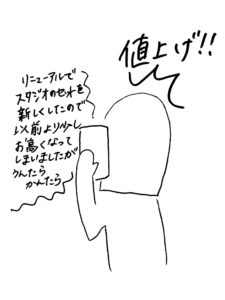 値上げ!!
リニューアルで
スタジオのセットを
新しくしたので
以前より少し
お高くなって
しまいましたが
うんたら
かんたら